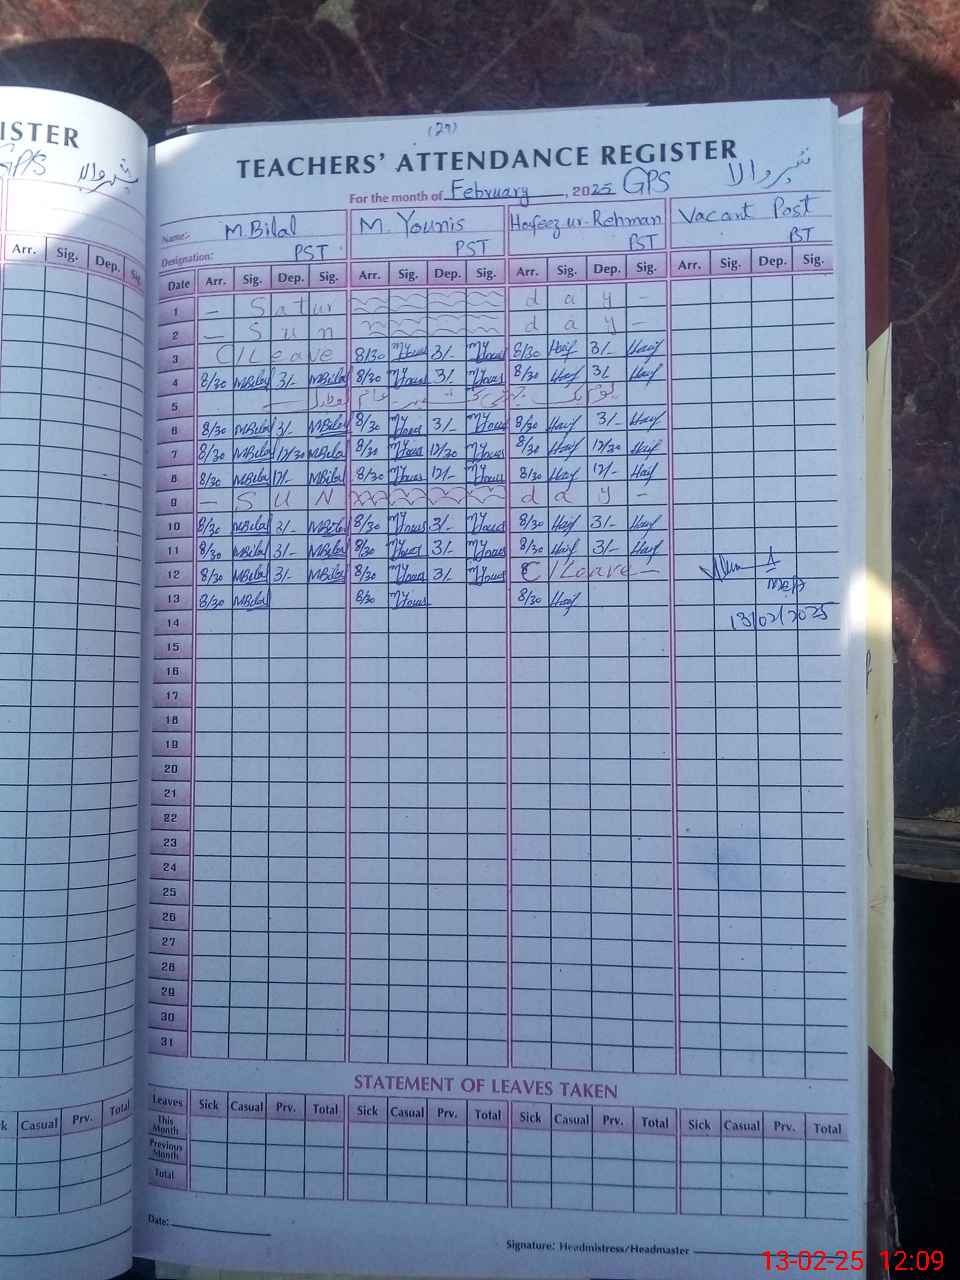 (27)
ISTER
TEACHERS' ATTENDANCE REGISTER
GPS شیروالا
For the month of February, 2025 GPS شیروالا
Name:- M.Bilal M. Younis Hafeez ur-Rehman Vacant Post
Designation: PST PST PST PST
Arr. Sig. Dep. Sig.
Date Arr. Sig. Dep. Sig. Arr. Sig. Dep. Sig. Arr. Sig. Dep. Sig. Arr. Sig. Dep. Sig.
1 — Satur day —
2 — Sun day —
3 C/Leave 8/30 MYounis 3/- MYounis 8/30 Hafi 3/- Hafi
4 8/30 MBilal 3/- MBilal 8/30 MYounis 3/- MYounis 8/30 Hafi 3/- Hafi
5 یوم یکجہتی کشمیر عام تعطیل
6 8/30 MBilal 3/- MBilal 8/30 MYounis 3/- MYounis 8/30 Hafi 3/- Hafi
7 8/30 MBilal 12/30 MBilal 8/30 MYounis 12/30 MYounis 8/30 Hafi 12/30 Hafi
8 8/30 MBilal 12/- MBilal 8/30 MYounis 12/- MYounis 8/30 Hafi 12/- Hafi
9 — SUN day —
10 8/30 MBilal 3/- MBilal 8/30 MYounis 3/- MYounis 8/30 Hafi 3/- Hafi
11 8/30 MBilal 3/- MBilal 8/30 MYounis 3/- MYounis 8/30 Hafi 3/- Hafi
12 8/30 MBilal 3/- MBilal 8/30 MYounis 3/- MYounis C/Leave —
13 8/30 MBilal 8/30 MYounis 8/30 Hafi
MEA
14 13/02/2025
15
16
17
18
19
20
21
22
23
24
25
26
27
28
29
30
31
STATEMENT OF LEAVES TAKEN
Casual Prv. Total
Leaves Sick Casual Prv. Total Sick Casual Prv. Total Sick Casual Prv. Total Sick Casual Prv. Total
This Month
Previous Month
Total
Date:
Signature: Headmistress/Headmaster
13-02-25 12:09